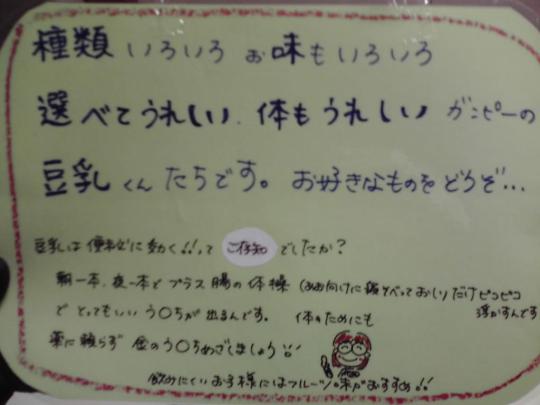 種類いろいろ お味もいろいろ
選べてうれしい、体もうれしい ガンピーの
豆乳くんたちです。お好きなものをどうぞ…
豆乳は便秘に効く!!って ご存知 でしたか?
朝一本、夜一本と プラス 腸の体操 (あお向けに寝そべっておしりだけピコピコ
浮かすんです
で とってもいい う〇ちが 出るんです。 体のためにも
薬に頼らず 金のう〇ちめざしましょう!!
飲みにくいお子様にはフルーツ味がおすすめ!!